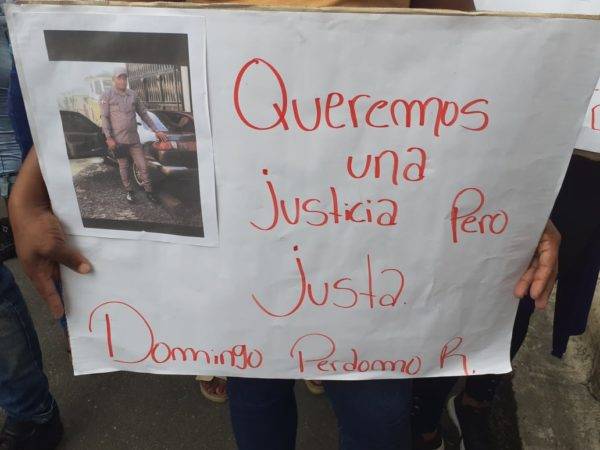 Queremos
una
justicia Pero
justa.
Domingo Perdomo R.